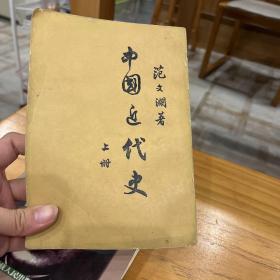 范文澜著
中国近代史
上册